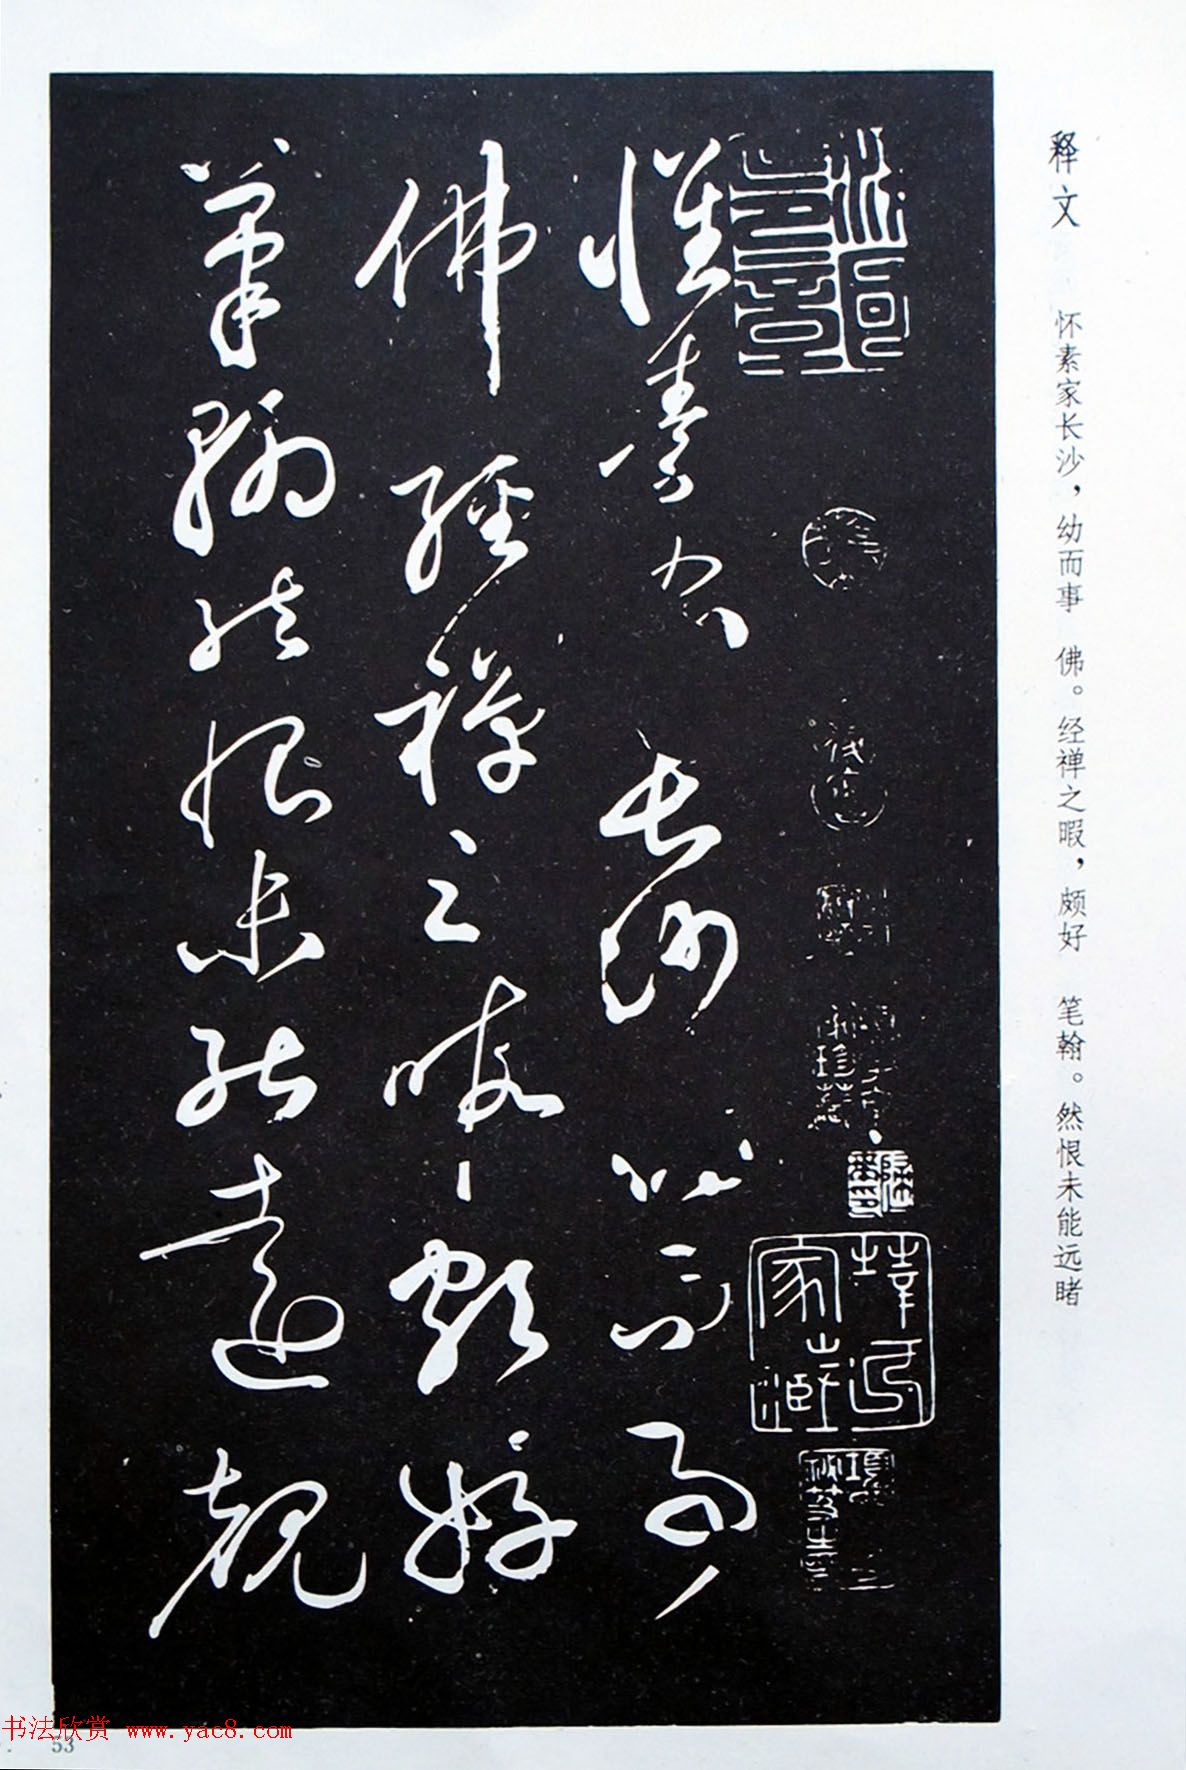 释文 怀素家长沙，幼而事 佛。经禅之暇，颇好 笔翰。然恨未能远睹
懷素家長沙幼而事
佛經禪之暇頗好
筆翰然恨未能遠覩
书法欣赏 www.yac8.com
53